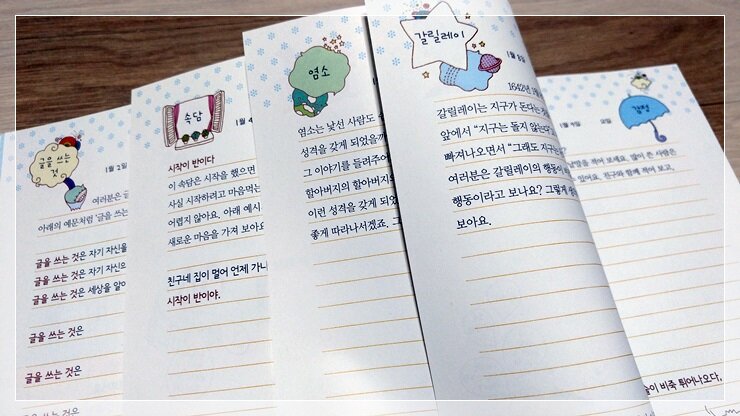 글을 쓰는
것
1월 2일
여러분은 글
아래의 예문처럼 '글을 쓰는
글을 쓰는 것은 자기 자신을
글을 쓰는 것은 자기 자신의
글을 쓰는 것은 세상을 알아
글을 쓰는 것은
글을 쓰는 것은
글을 쓰는 것은
속담
1월 4
시작이 반이다
이 속담은 시작을 했으면
사실 시작하려고 마음먹는
어렵지 않아요. 아래 예시
새로운 마음을 가져 보아요
친구네 집이 멀어 언제 가나
시작이 반이야.
염소
염소는 낯선 사람도
성격을 갖게 되었을까
그 이야기를 들려주어
할아버지의 할아버지의
이런 성격을 갖게 되
좋게 따라나서겠죠. 그
갈릴레이
1월 8일
1642년 1월
갈릴레이는 지구가 돈다는
앞에서 "지구는 돌지 않는다"
빠져나오면서 "그래도 지구는
여러분은 갈릴레이의 행동이
행동이라고 보나요? 그렇게
보아요.
감정
요일
낱말을 적어 보세요. 많이 쓴 사람은
있어요. 친구와 함께 적어 보고,
비죽 튀어나오다,